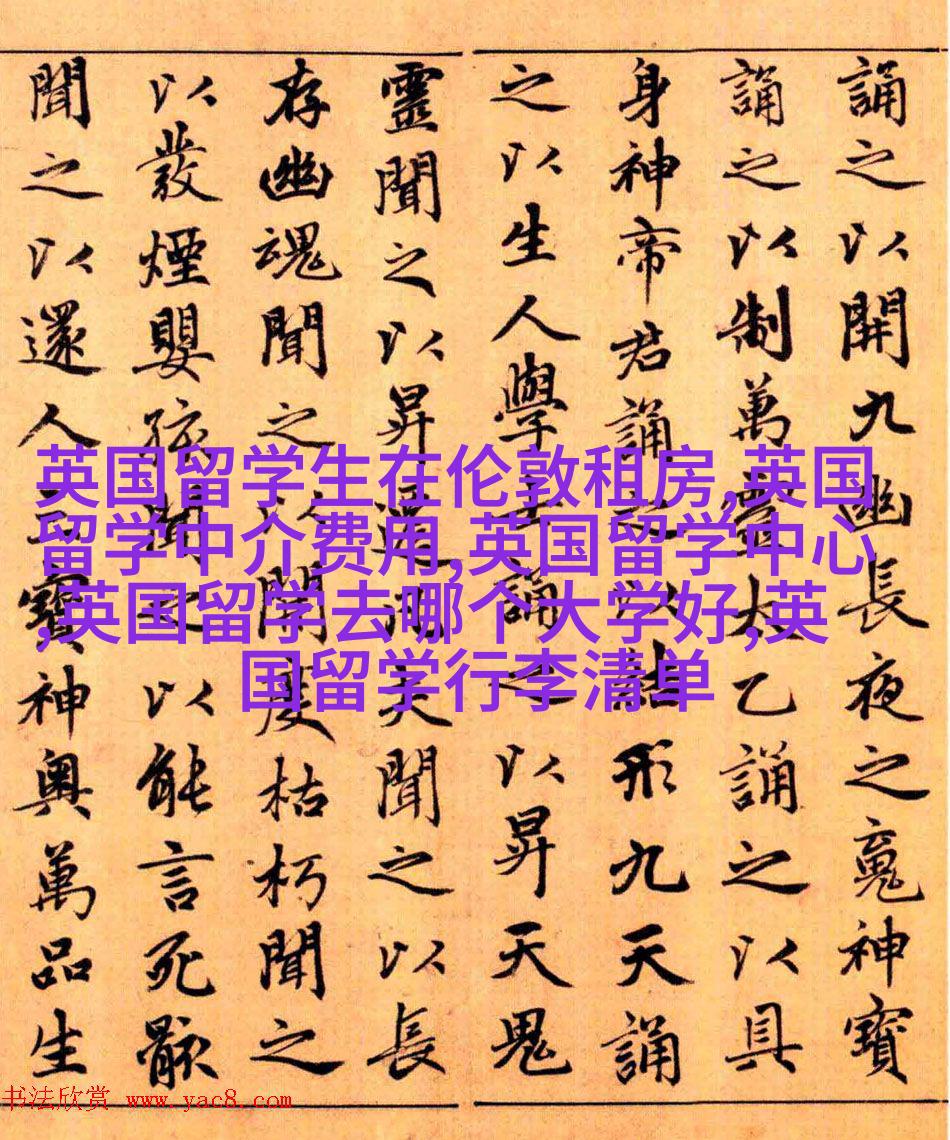 誦之以開九幽長夜之魂神寶
誦之以制萬靈太乙誦之以具
身神帝君誦之以結形九天誦
之以生人學士誦之以昇天鬼
靈聞之以昇遷洞天聞之以長
存幽魂聞之以開度枯朽聞之
以發煙嬰孩聞之以能言死骸
聞之以還人三寶神奧萬品生
英国留学生在伦敦租房,英国
留学中介费用,英国留学中心
,英国留学去哪个大学好,英
国留学行李清单
书法欣赏 www.yac8.com